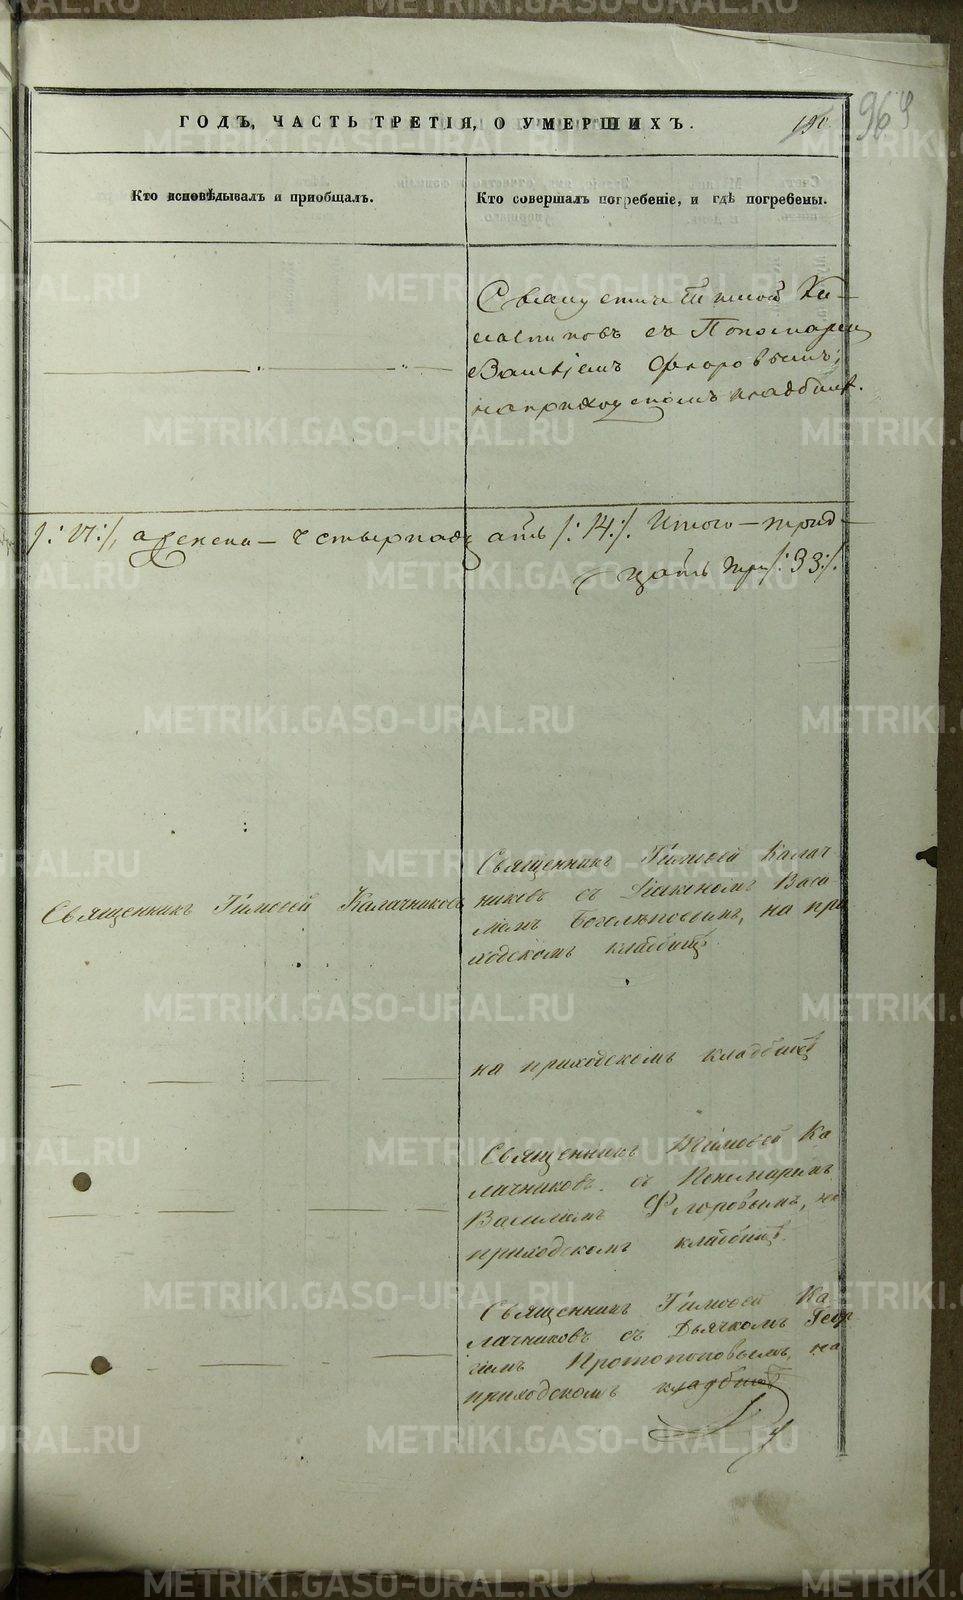 ГОДЪ, ЧАСТЬ ТРЕТІЯ, О УМЕРШИХЪ.
964
Кто исповѣдывалъ и приобщалъ.
Кто совершалъ погребеніе, и гдѣ погребены.
съ Пономаремъ
на приходскомъ кладбищѣ.
а женска – четырнадцать /:14:/. Итого – трид-
цать три /:33:/.
Священникъ Тимофей Калачниковъ
Священникъ Тимофей Калач-
никовъ съ Діакономъ Васи-
на при-
ходскомъ кладбищѣ.
на приходскомъ кладбищѣ
Священникъ Тимофей Ка-
лачниковъ съ Пономаремъ
Василіемъ Флоровымъ, на
приходскомъ кладбищѣ.
Священникъ Тимофей Ка-
лачниковъ съ Дьячкомъ Геор-
гіемъ Протопоповымъ, на
приходскомъ кладбищѣ
METRIKI.GASO-URAL.RU